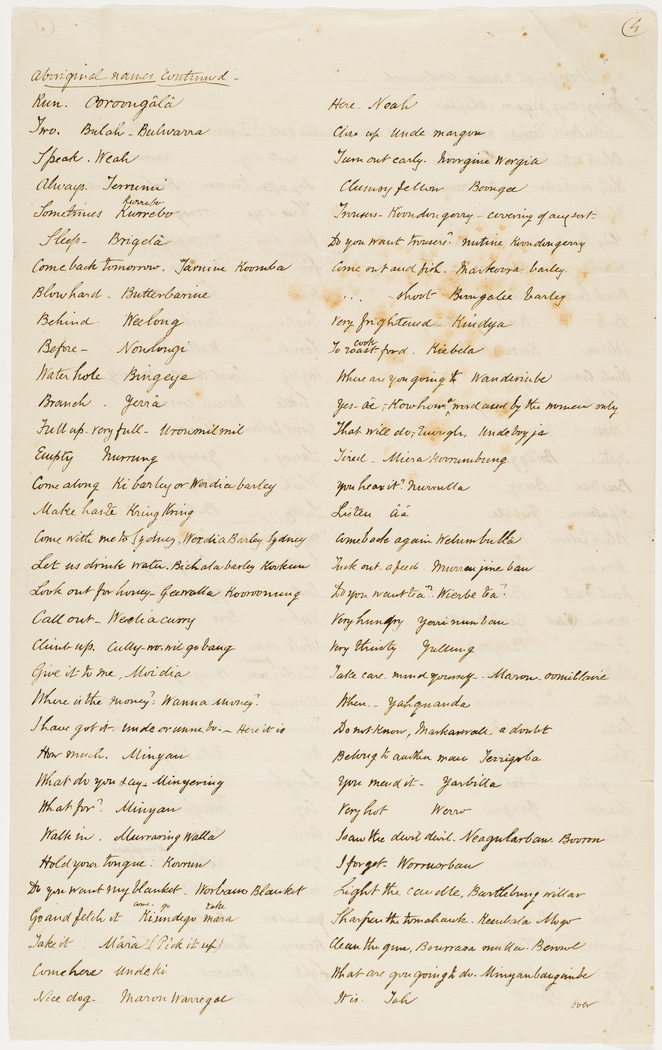 4
Aboriginal names Continued -
Run. Ooroongălă
Two. Bulah - Bulwarra
Speak. Weah
Always. Terruni
Kurrebo
Sometimes Kurrebo
Sleep - Brigelă
Come back tomorrow. Tamine Koomba
Blow hard - Butterbarine
Behind Weelong
Before - Noulongi
Water hole Bingeye
Branch - Yerră
Full up. very full - Uronmilmil
Empty Nurrung
Come along Ki barley or Werdia barley
Make haste Kring Kring
Come with me to Sydney. Werdia Barley Sydney
Let us drink water. Bichala barley Korkun
Look out for honey - Geewalla Kooroonung
Call out - Weelia curry
Climb up. Cully-wo-wil go bang
Give it to me, Moidia
Where is the money? Wanna money?
I have got it. unde or unne bo - Here it is
How much. Minyan
What do you say. Minyering
What for? Minyan
Walk in. Murraring Walla
Hold your tongue. Korrun
Do you want my blanket. Worbann Blanket
come go take
Go and fetch it Kiundego mara
Take it Mara (Pick it up)
Come here Unde ki
Nice dog. Maron Warregal
Here - Noah
Close up Unde margon
Turn out early. Norrgine Wergia
Clumsy fellow Boongee
Trousers - Koondongerry - covering of any sort -
Do you want trousers? nutine Koondongerry
Come out and fish. Markoora barley.
. . . shoot Bungalee barley
Very frightened - Kindya
cook
To roast food. Kiebela
Where are you going to Wanderiebe
Yes - ae; Kowhow, word used by the women only
That will do; Enough, Undebryja
Tired - Micra Korrumbung
You hear it? Nurrulla
Listen ăă
Come back again Welumbulla
Tuck out. a feed. Murrenjine bau
Do you want tea? Wierbe tea?
Very hungry Yerri nun bau
Very thirsty Yullung
Take care. mind yourself - Maron - oomillaire
When - Yahquanda
Do not know, Markarwall. a doubt
Belong to another man Terrigoba
You mend it - Yarbilla
Very hot Werro
I saw the devil devil. Neagularbau. Booron
I forget - Worrurbau
Light the candle, Bartleburg willar
Sharpen the tomahawk. Keubala Mogo
Clean the gun, Bourrasa mulla. Berowl
What are you going to do. Minyanbangimbe
It is. Yah
over